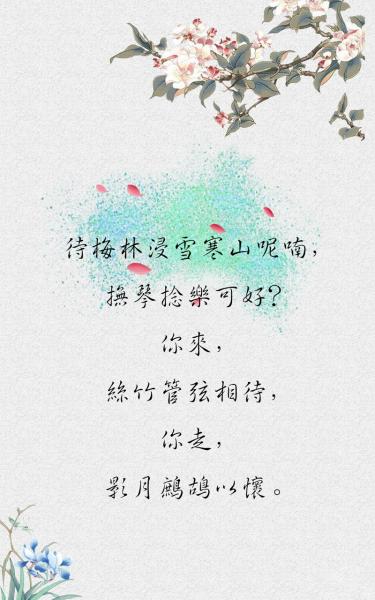 待梅林浸雪寒山呢喃，
撫琴捻樂可好？
你來，
絲竹管弦相待，
你走，
影月鷓鴣以懷。